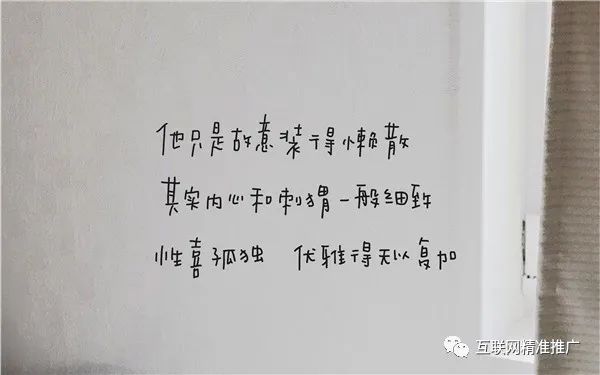 他只是故意装得懒散
其实内心和刺猬一般细致
性喜孤独 伏雅得无以复加
互联网精准推广